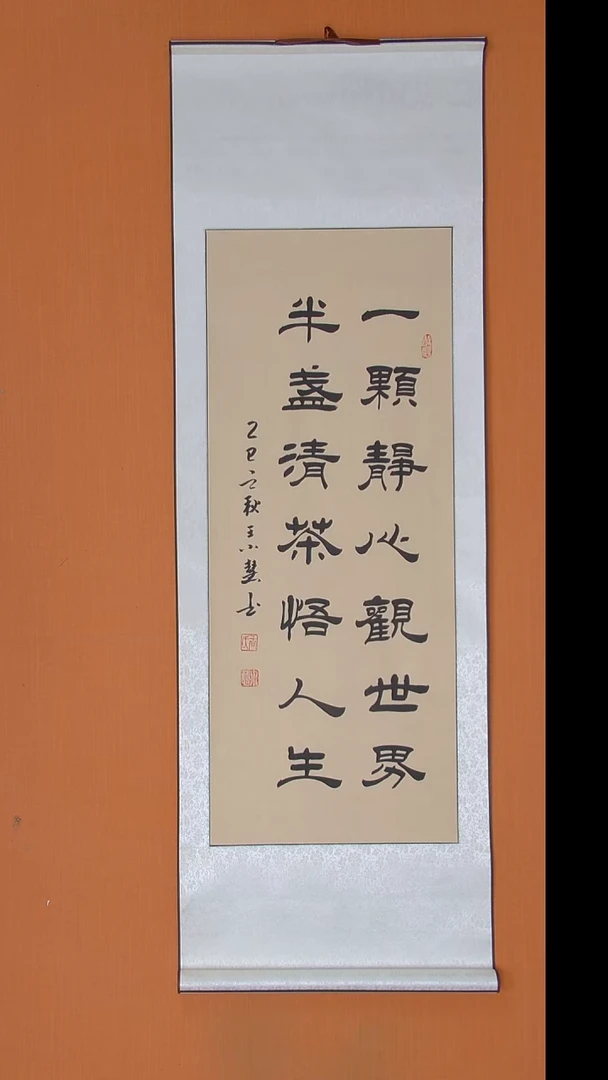 一顆靜心觀世界
半盞清茶悟人生
乙巳之秋王小慧书